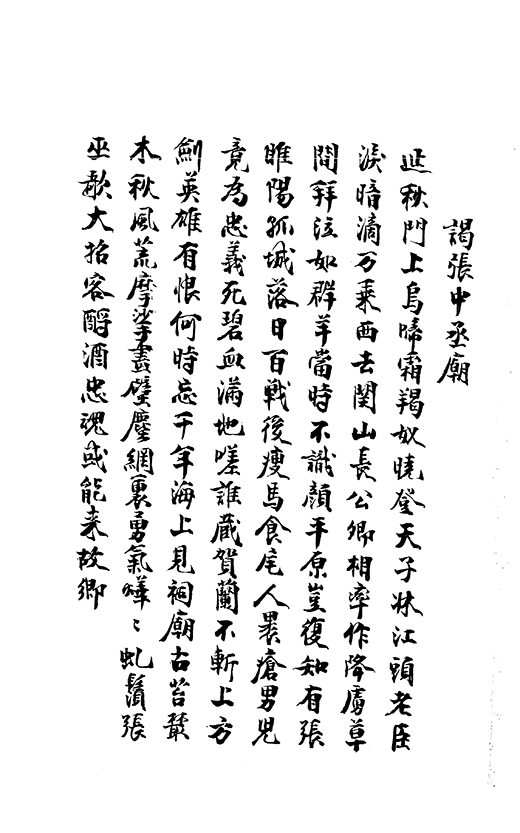 謁張中丞廟
延秋門上烏啼霜羯奴曉登天子牀江頭老臣
淚暗滴万乗西去関山長公卿相率作降虜草
間拜泣如群羊當時不識顔平原豈復知有張
睢陽孤城落日百戰後瘦馬食尾人裹瘡男兒
竟為忠義死碧血滿地嗟誰蔵賀蘭不斬上方
劍英雄有恨何時忘千年海上見祠廟古苔叢
木秋風荒摩挲畫壁塵網裏勇氣燁〻虬鬚張
巫歌大招客酹酒忠魂或能来故鄉